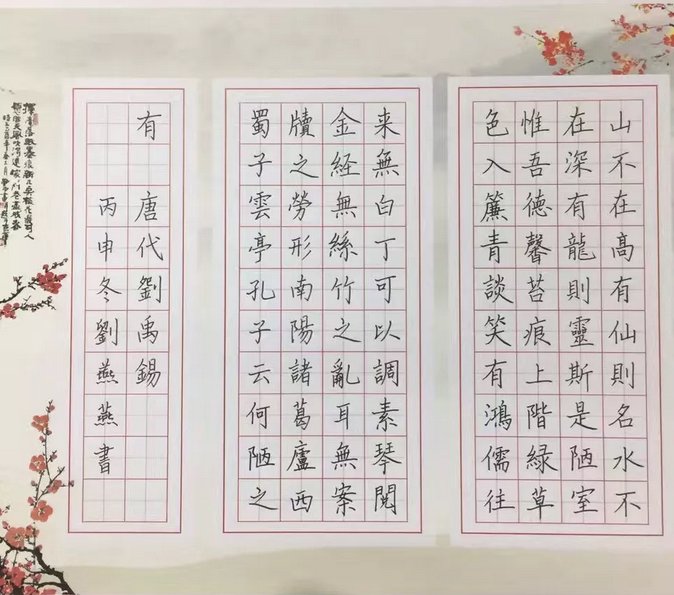 山不在高有仙則名水不
在深有龍則靈斯是陋室
惟吾德馨苔痕上階緑草
色入簾青談笑有鴻儒往
来無白丁可以調素琴閲
金経無絲竹之亂耳無案
牘之勞形南陽諸葛廬西
蜀子雲亭孔子云何陋之
有 唐代劉禹錫
丙申冬劉燕燕書